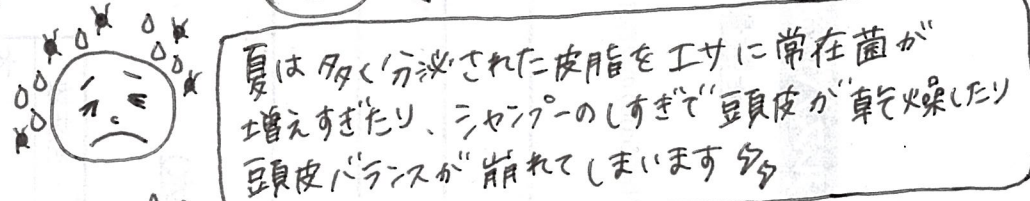 夏は多く分泌された皮脂をエサに常在菌が
増えすぎたり、シャンプーのしすぎで頭皮が乾燥したり
頭皮バランスが崩れてしまいます